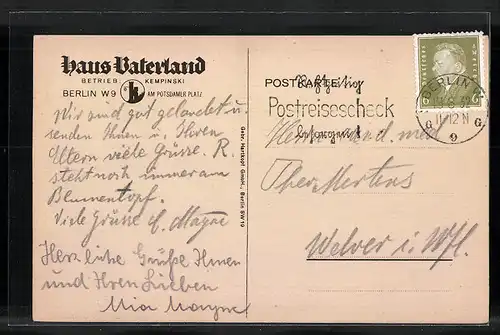 Haus Vaterland
BETRIEB: KEMPINSKI
BERLIN W9 AM POTSDAMER PLATZ
Wir sind gut gelandet u.
senden Ihnen u. Ihren
Eltern viele Grüsse. R.
steht noch immer am
Blumentopf.
Viele Grüsse
Herzliche Grüße Ihnen
und Ihren Lieben
Mia Mayne
Gebr. Hartkopf GmbH., Berlin SW 19
POSTKARTE
Postreisescheck
BERLIN W
11-12 N
G G
9
6 6
Herrn cand. med
Theo Mertens
Welver i. Wf.